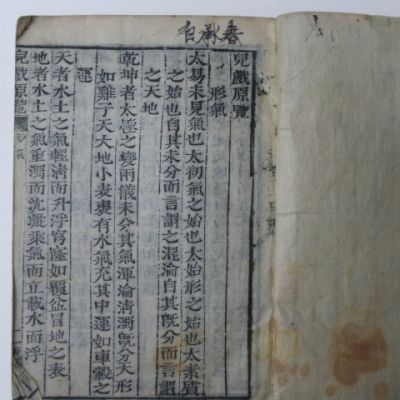 兒戲原覽
形氣
太易未見氣也太初氣之始也太始形之始也太素質
之始也自其未分而言謂之混淪自其旣分而言謂
之天地
乾坤者太極之變兩儀未分其氣渾淪淸濁旣分天形
如雞子天大地小表裏有水氣充其中運如車轂之
運
天者水土之氣輕淸而升浮穹窿如覆盆冒地之表
地者水土之氣重濁而沈凝乘氣而立載水而浮
兒戲原覽